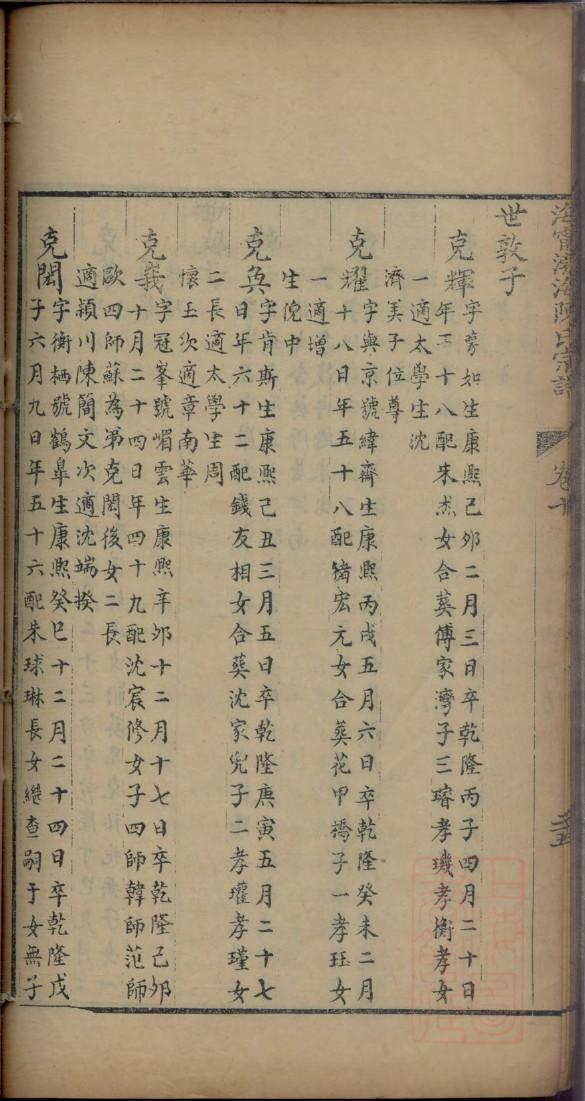 海寧渤海陳氏宗譜
卷十
世敦子
克輝字夢如生康熙己夘二月三日卒乾隆丙子四月二十日
年五十八配朱杰女合葬傅家灣子三璿孝璣孝衡孝女
一適太學生沈
濟美子位尊
克耀字與京號緯齋生康熙丙戌五月六日卒乾隆癸未二月
十八日年五十八配褚宏元女合葬花甲橋子一孝珏女
一適增
生倪中
克奐字肯斯生康熙己丑三月五日卒乾隆庚寅五月二十七
日年六十二配錢友相女合葬沈家兜子二孝瓘孝瑾女
二長適太學生周
懷玉次適章南華
克義字冠峯號嵋雲生康熙辛夘十二月十七日卒乾隆己夘
十月二十四日年四十九配沈宸修女子四師韓師范師
歐四師蘇為苐克閎後女二長
適潁川陳簡文次適沈端揆
克閎字衡栖號鶴臯生康熙癸巳十二月二十四日卒乾隆戊
子六月九日年五十六配朱球琳長女繼查嗣于女無子